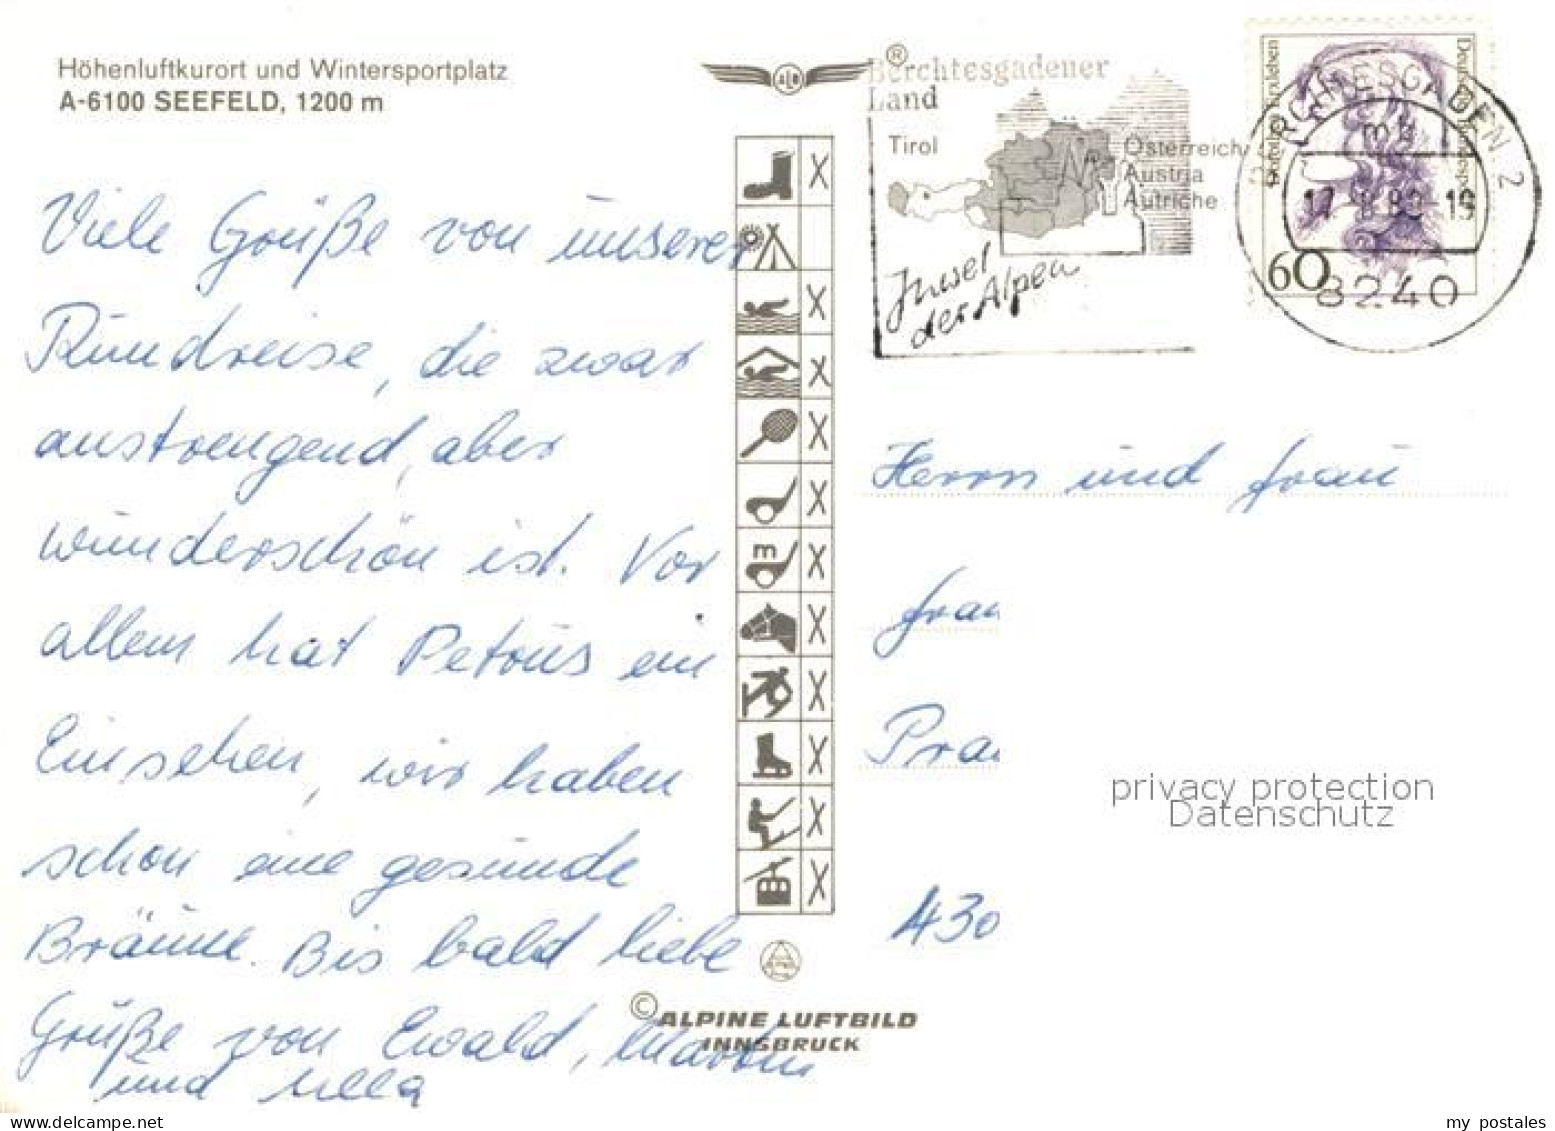 Höhenluftkurort und Wintersportplatz
A-6100 SEEFELD, 1200 m
Viele Grüße von unserer
Rundreise, die zwar
anstrengend, aber
wunderschön ist. Vor
allem hat Petrus ein
Einsehen, wir haben
schon eine gesunde
Bräune. Bis bald liebe
Grüße von Ewald, Martin
und Ulla
ALB
®
Berchtesgadener
Land
Tirol
Österreich
Austria
Autriche
Insel
der Alpen
BERCHTESGADEN 2
mb
8240
60
Dorothea Erxleben
Deutsche Bundespost
m
X
X
X
X
X
X
X
X
X
X
X
Herrn und Frau
Fran
Pra
430
privacy protection
Datenschutz
© ALPINE LUFTBILD
INNSBRUCK
my postales